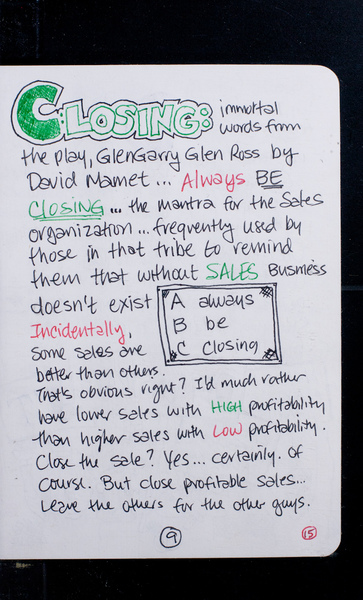 CLOSING: immortal
words from
the play, GlenGarry Glen Ross by
David Mamet... Always BE
CLOSING... the mantra for the Sales
organization... frequently used by
those in that tribe to remind
them that without SALES Business
doesn't exist
A always
B be
C closing
Incidentally,
some sales are
better than others.
That's obvious right? I'd much rather
have lower sales with HIGH profitability
than higher sales with LOW profitability.
Close the sale? Yes... certainly. of
course. But close profitable sales...
Leave the others for the other guys.
9
15